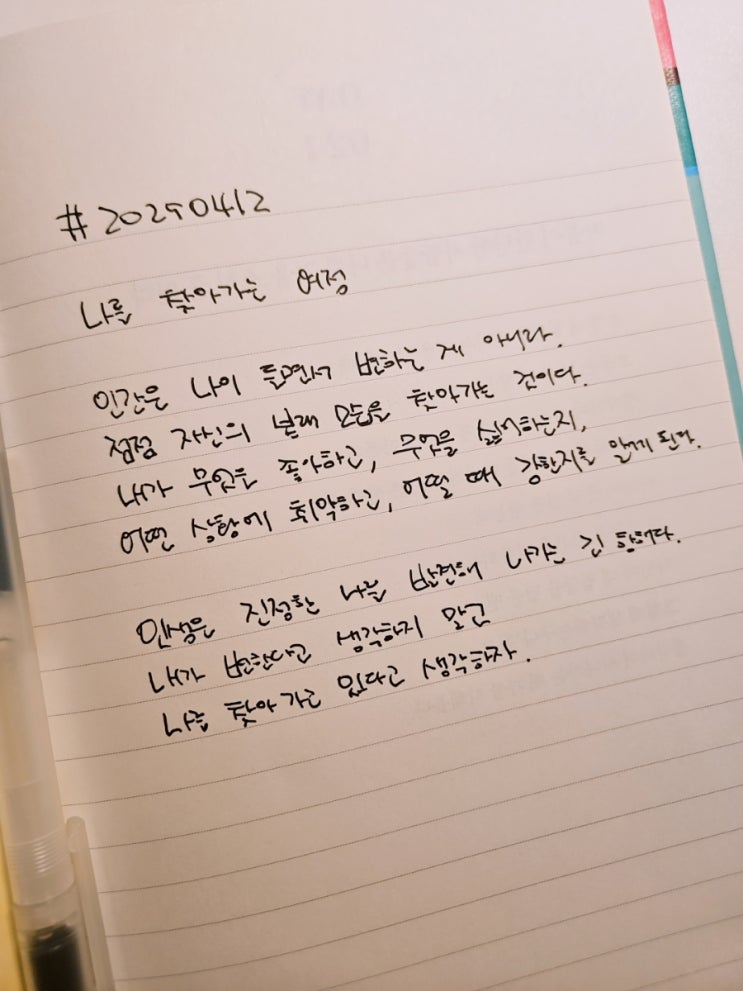 #20250412
나를 찾아가는 여정
인간은 나이 들면서 변하는 게 아니라.
점점 자신의 본래 모습을 찾아가는 것이다.
내가 무엇을 좋아하고, 무엇을 싫어하는지,
어떤 상황에 취약하고, 어떨 때 강한지를 알게 된다.
인생은 진정한 나를 발견해 나가는 긴 항해다.
내가 변한다고 생각하지 말고
나를 찾아가고 있다고 생각하자.